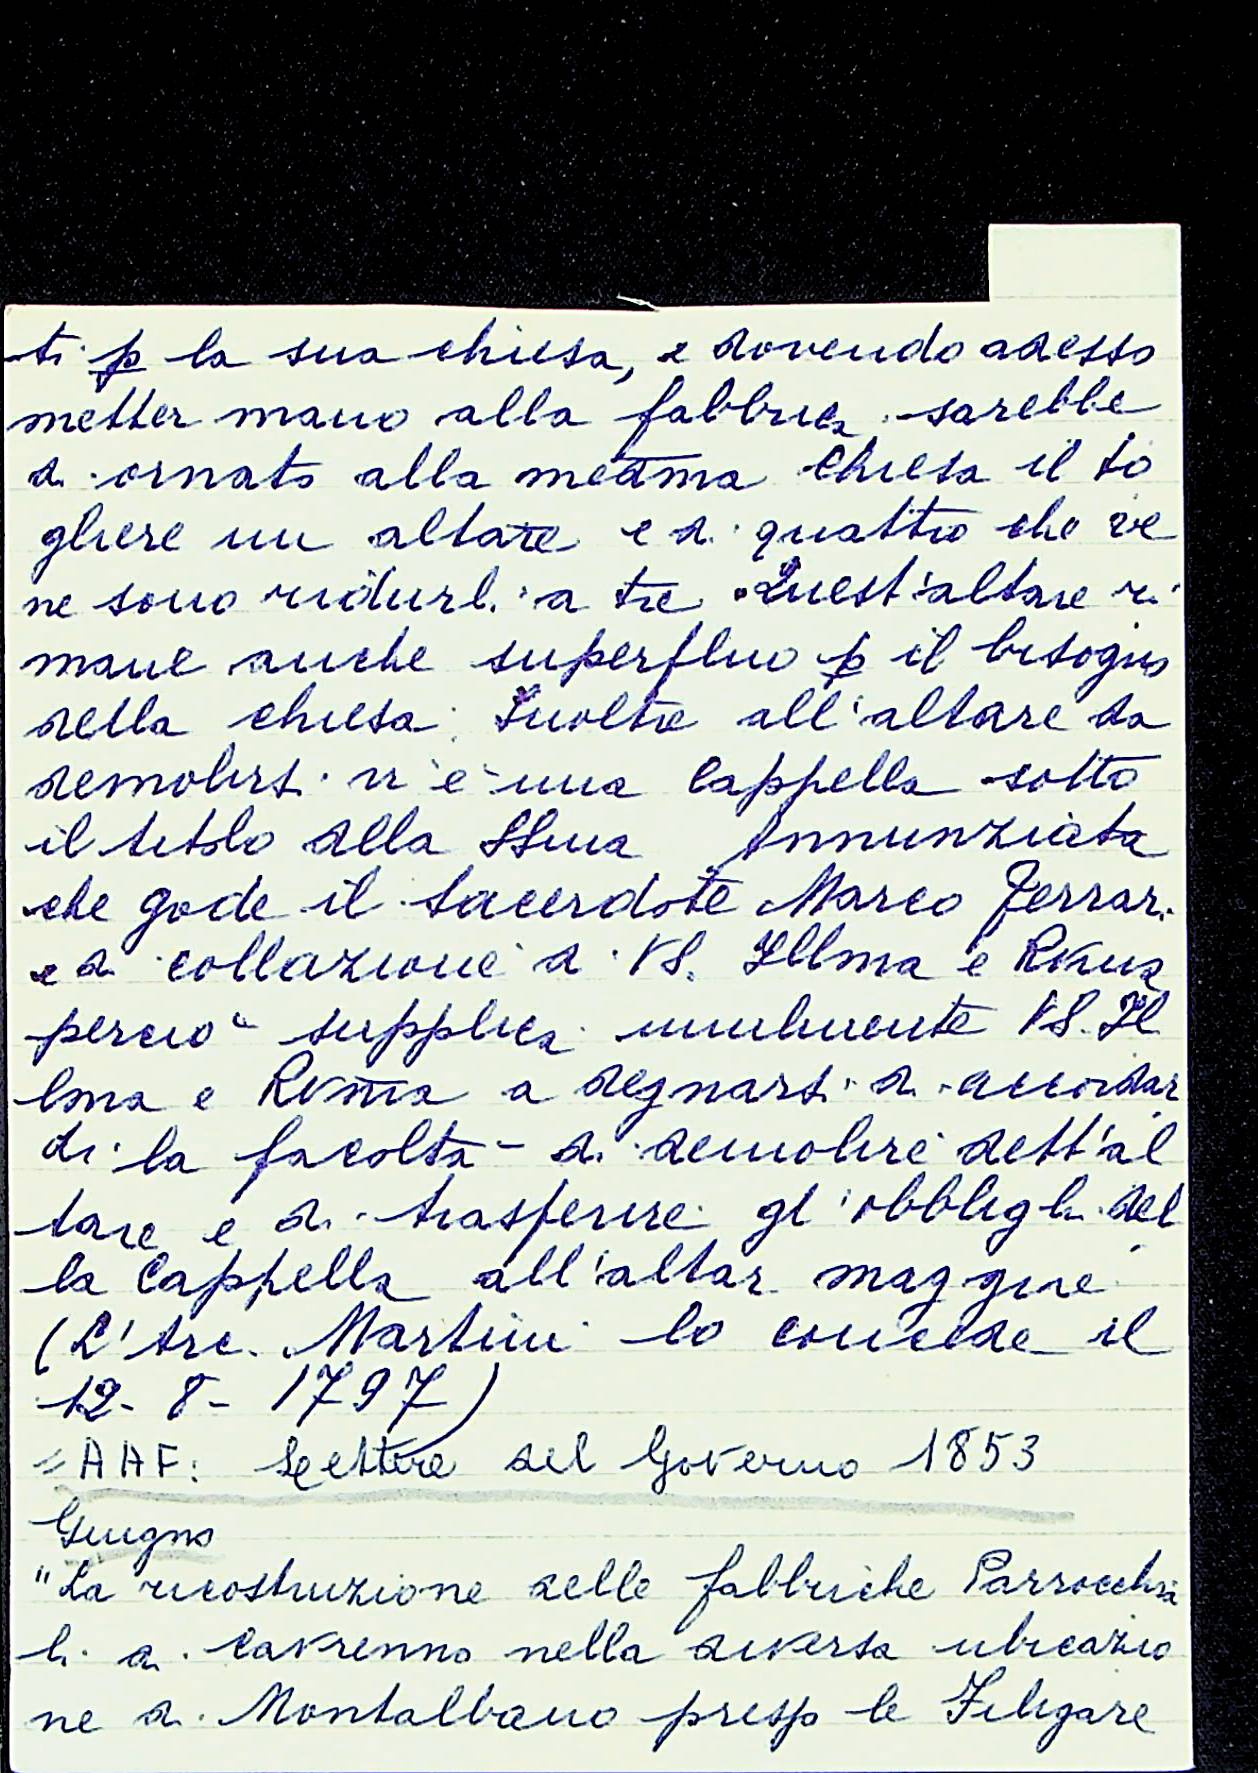 ti p la sua chiesa, e dovendo adesso
metter mano alla fabbrica sarebbe
di ornato alla medma Chiesa il to
gliere un altare e di quattro che ve
ne sono ridurli a tre. Quest'altare ri
mane anche superfluo p il bisogno
della chiesa. Inoltre all'altare da
demolirsi vi è una Cappella sotto
il titolo alla SSma Annunziata
che gode il Sacerdote Marco Ferrari
e di collazione di VS. Illma e Rvma
perciò supplica umilmente VS. Il
lma e Rvma a degnarsi di accordar
di la facoltà di demolire dett'al
tare e di trasferire gl'obblighi del
la Cappella all'altar maggiore
(L'Arc. Martini lo concede il
12-8-1797)
= AAF: Lettere del Governo 1853
Giugno
"La ricostruzione delle fabbriche Parrocchia
li di Cavrenno nella diversa ubicazio
ne di Montalbano presso le Filigare